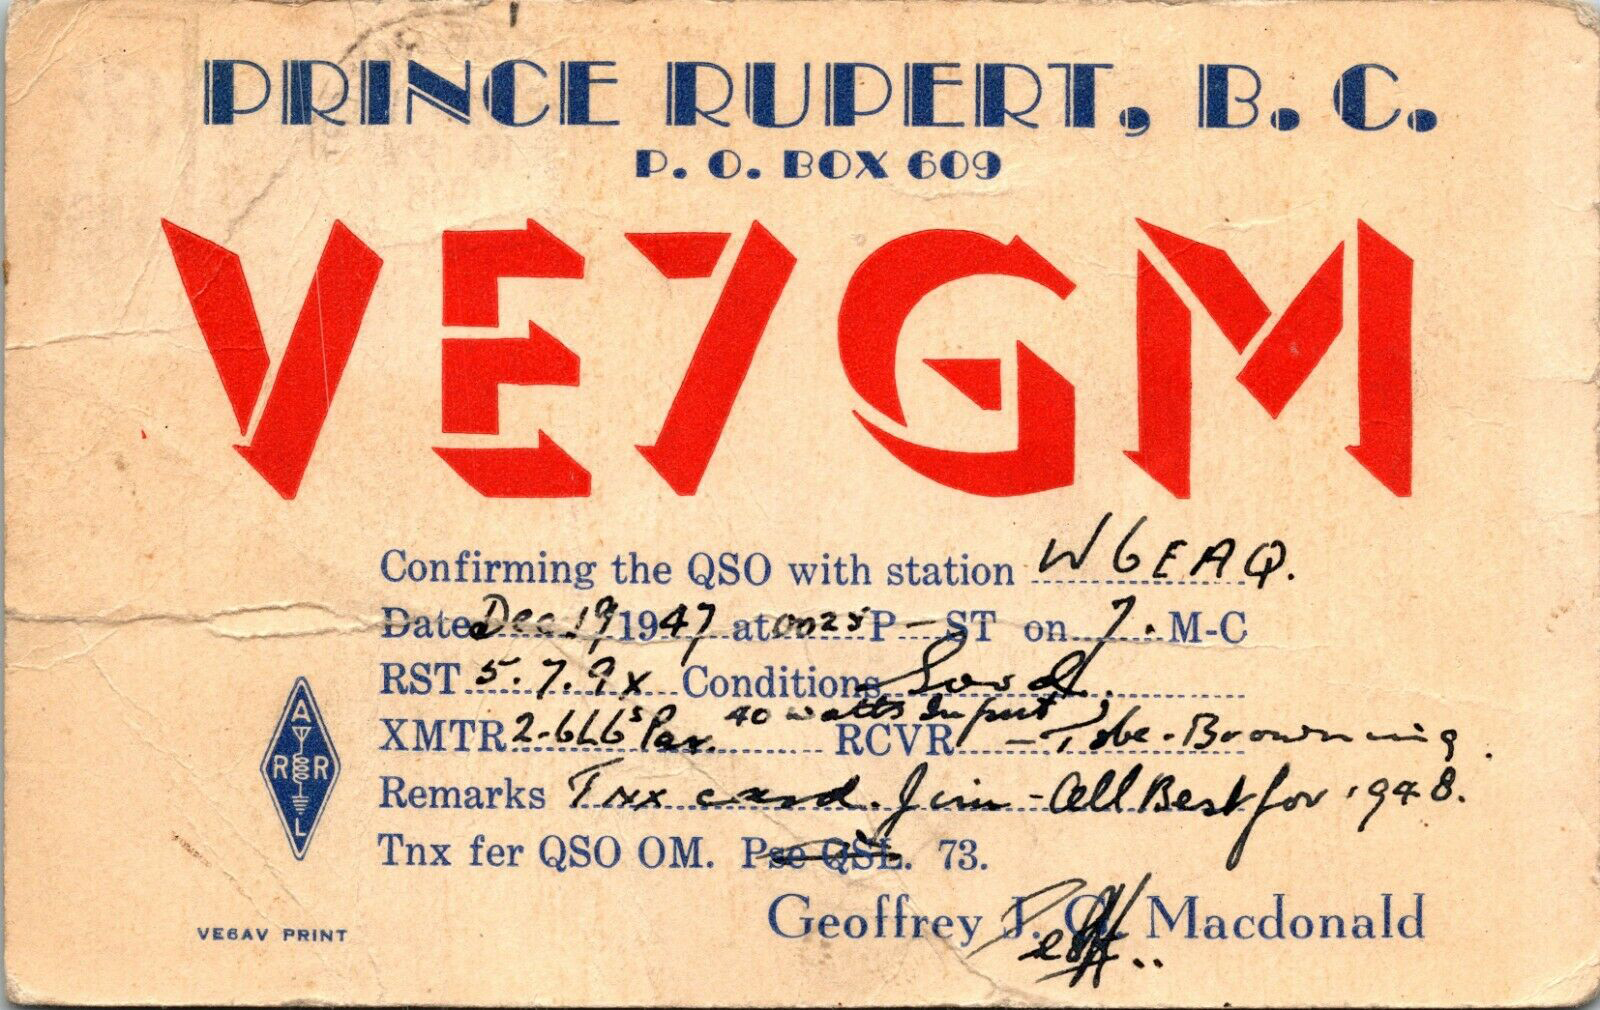 PRINCE RUPERT, B. C.
P. O. BOX 609
VE7GM
Confirming the QSO with station W6EAQ.
Date Dec 19 1947 at 0025 P-ST on 7. M-C
RST 5.7.9x Conditions Good.
XMTR 2-6L6s Par. 40 watts Input RCVR - Tobe-Browning.
Remarks Tnx card. Jim - All Best for 1948.
Tnx fer QSO OM. Pse QSL. 73.
Geoffrey J. G. Macdonald
Geoff..
A
R R
L
VE6AV PRINT